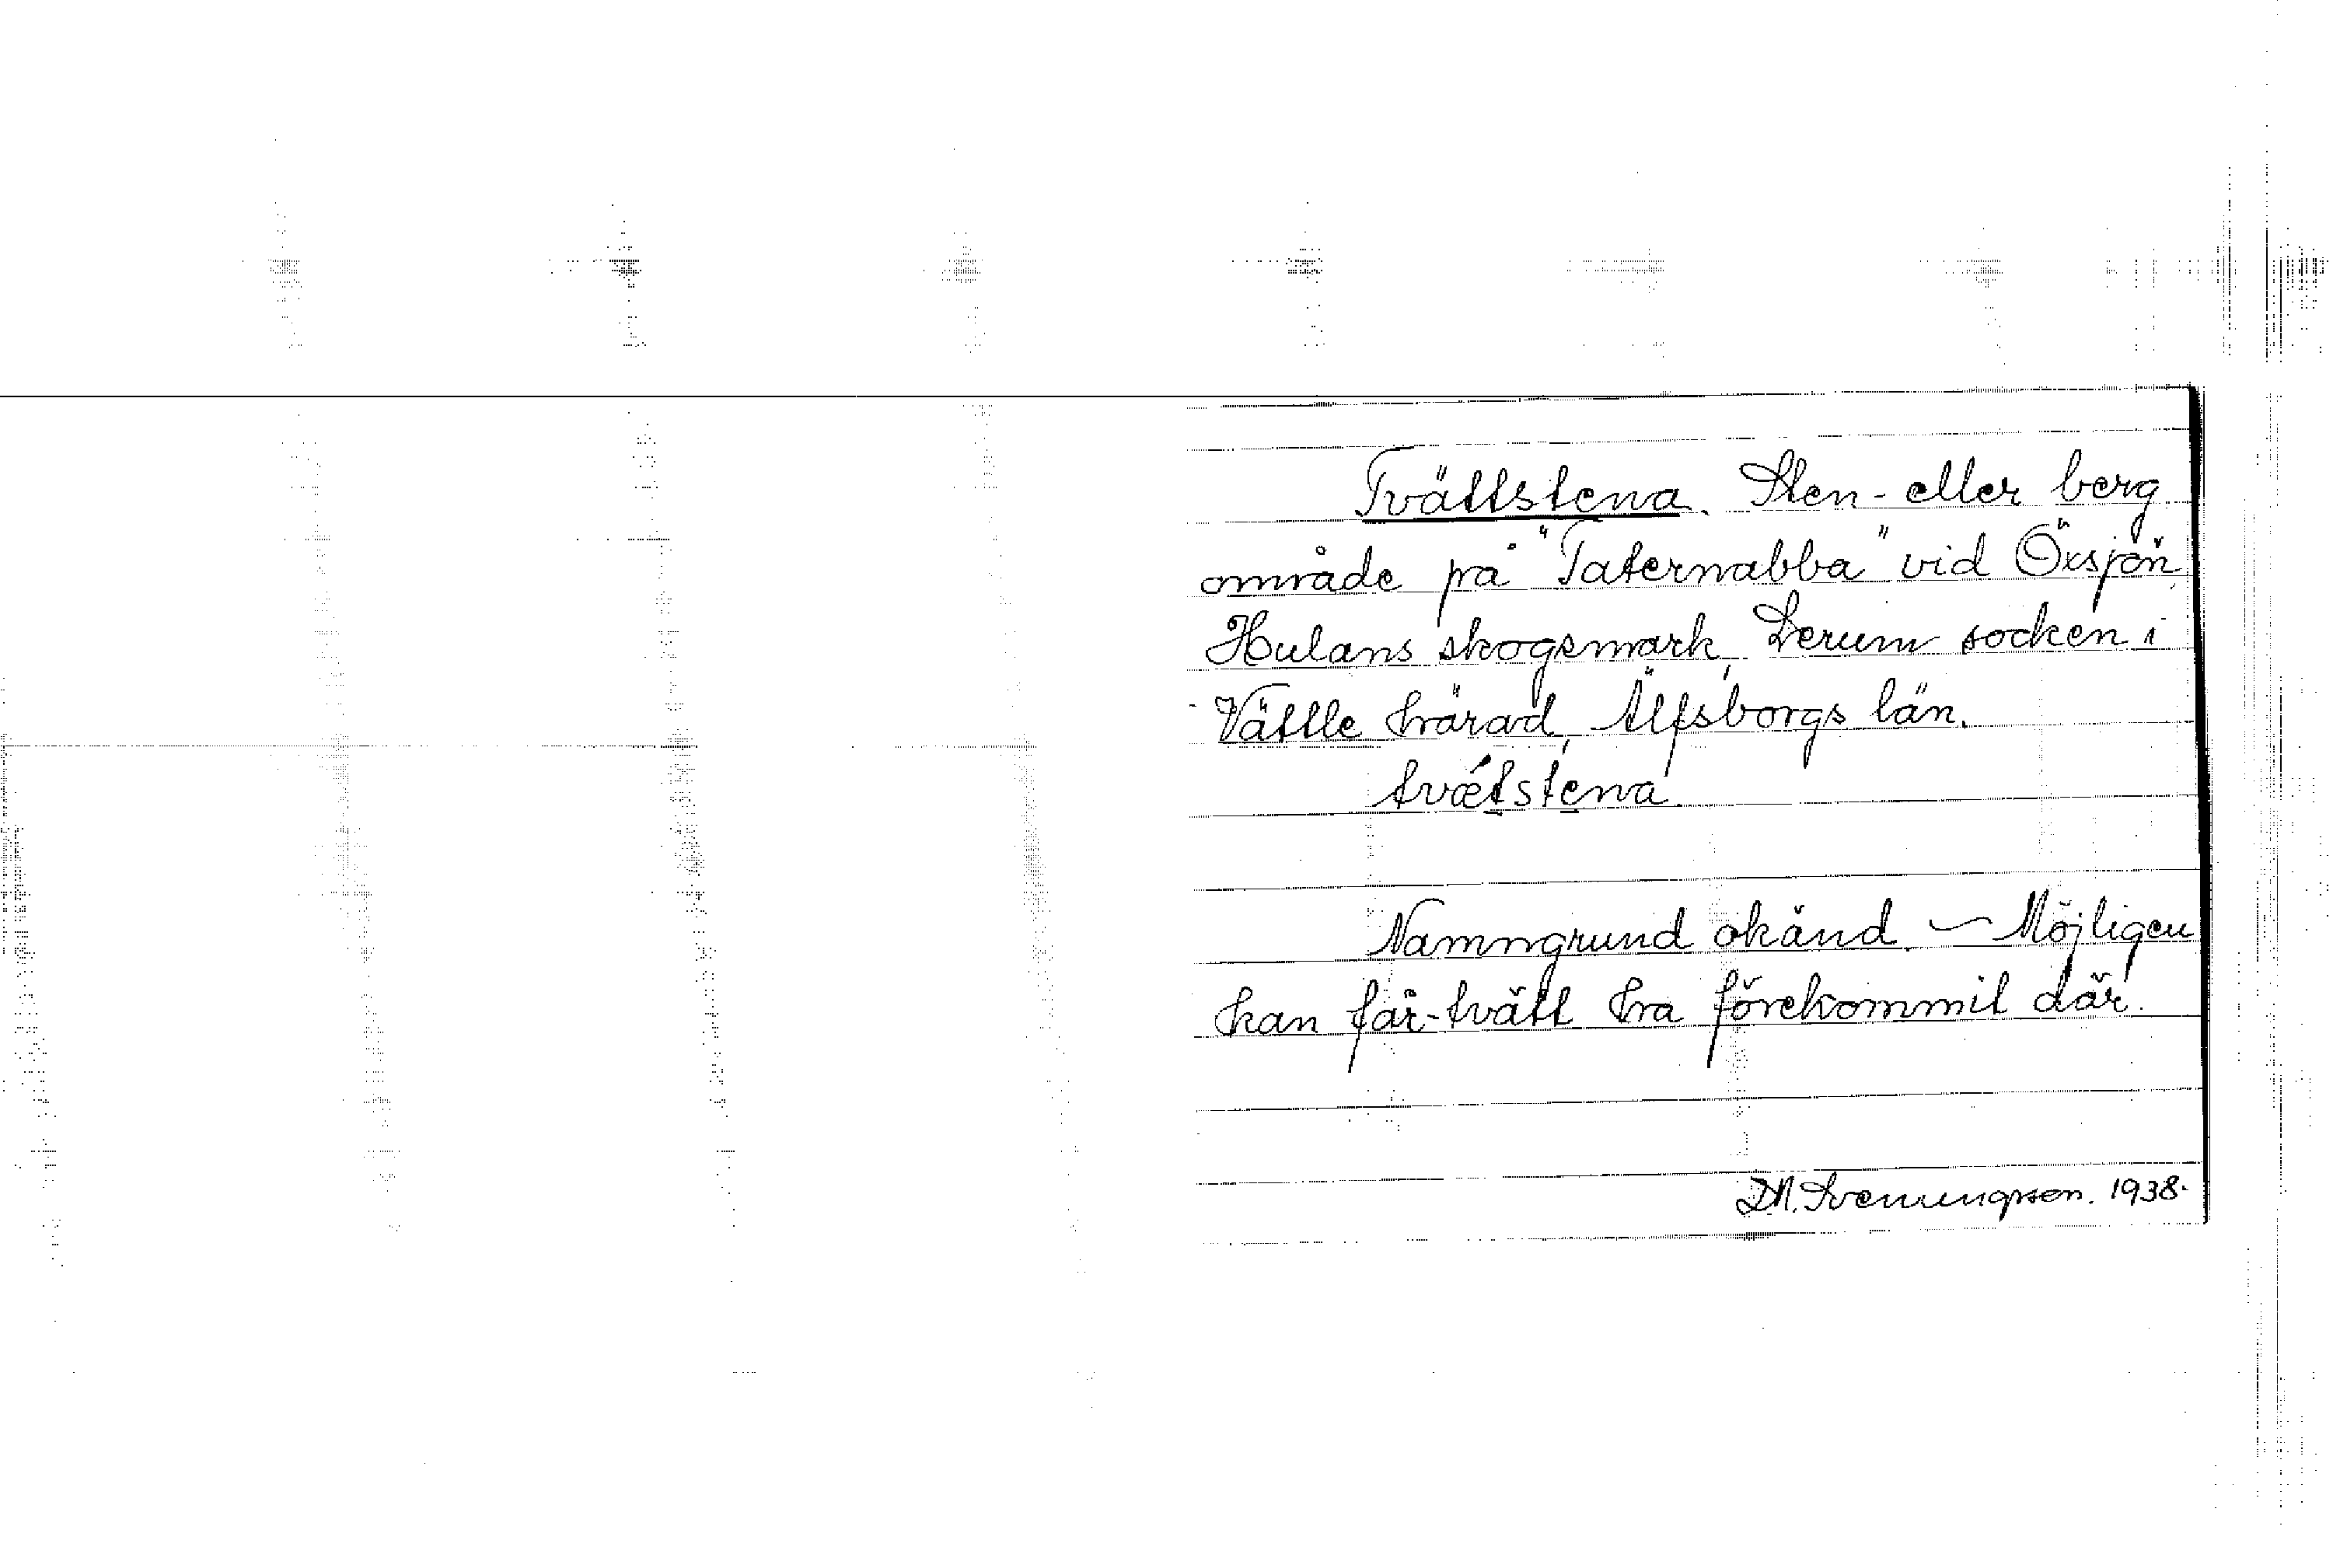 Tvättstena. Sten- eller berg
område på "Taternabba" vid Öxsjön,
Hulans skogsmark, Lerum socken i
Vättle härad, Älfsborgs län.
tvǽtstena
Namngrund okänd. — Möjligen
kan får-tvätt ha förekommit där.
D.N. Svenungsson. 1938.